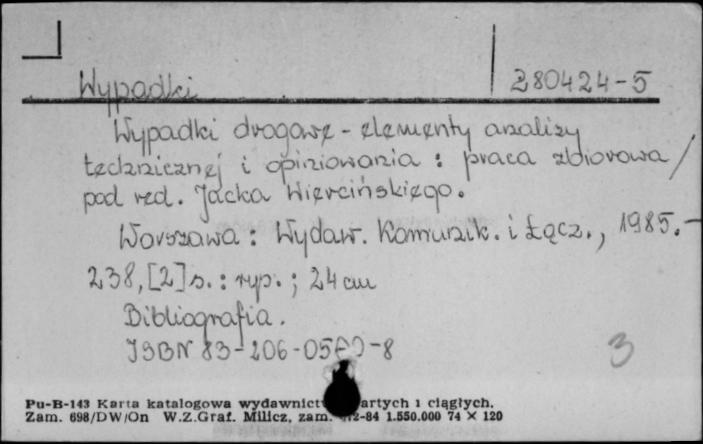 Wypadki 280424-5
Wypadki drogowe - elementy analizy
technicznej i opiniowania : praca zbiorowa /
pod red. Jacka Wiercińskiego.
Warszawa : Wydaw. Komunik. i Łącz., 1985. -
238, [2] s. : ryc. ; 24 cm
Bibliografia.
ISBN 83-206-05
-8
3
Pu-B-143 Karta katalogowa wydawnict artych i ciągłych.
Zam. 698/DW/On W.Z.Graf. Milicz, zam. 2-84 1.550.000 74 × 120